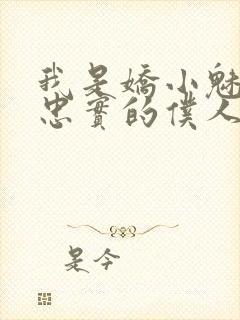 我是嬌小魅
忠實的僕人
是今